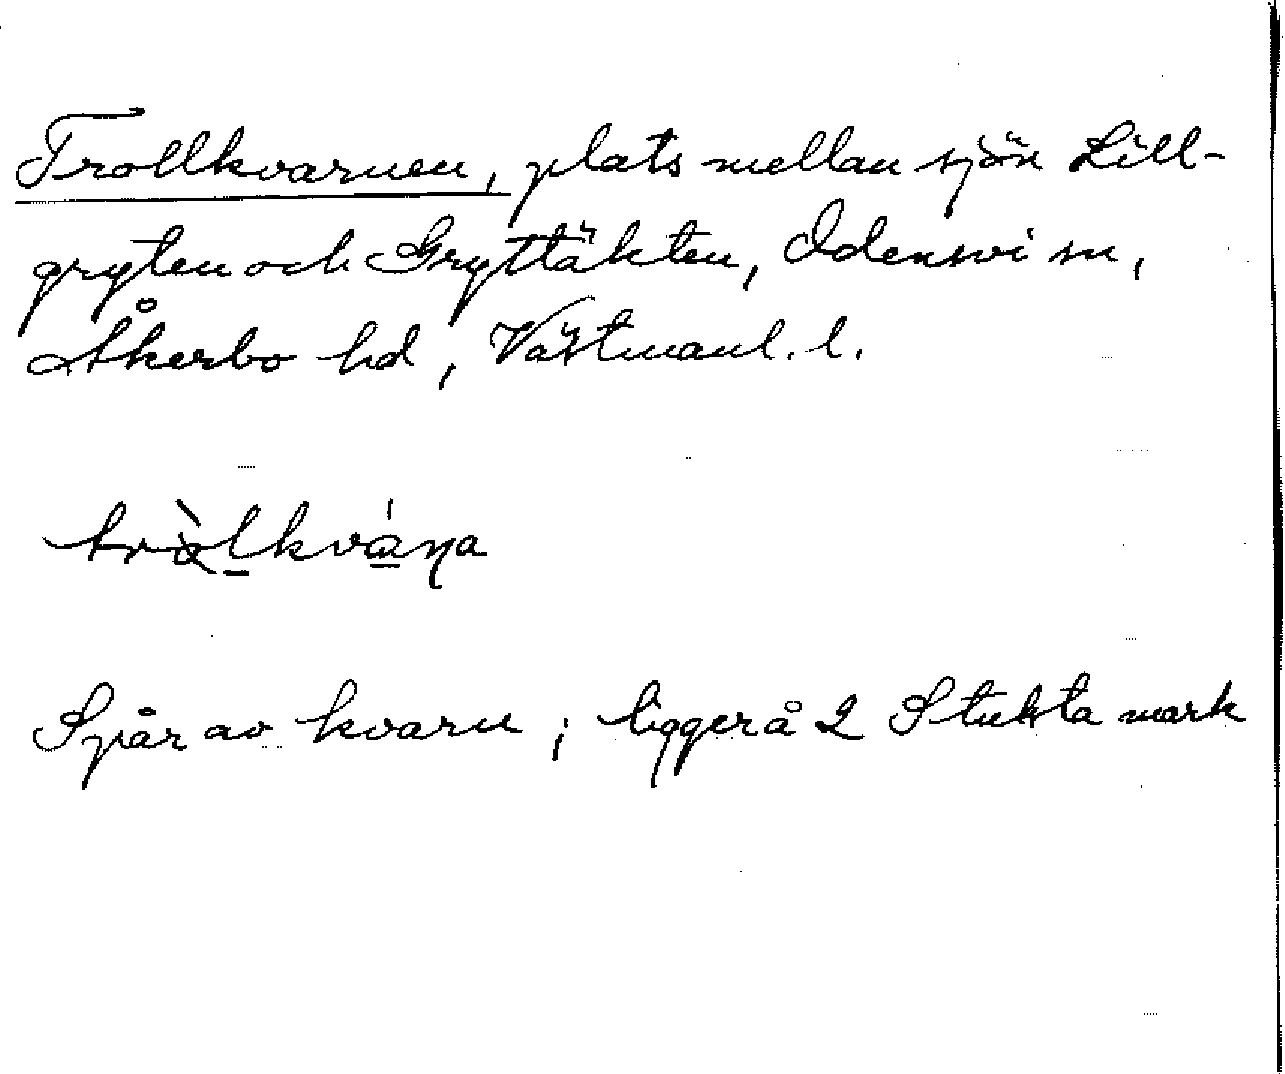 Trollkvarnen, plats mellan sjön Lill-
gryten och Gryttäkten, Odensvi sn,
Åkerbo hd, Västmanl. l.
tròlkváṇa
Spår av kvarn; ligger å 2 Stuksta mark